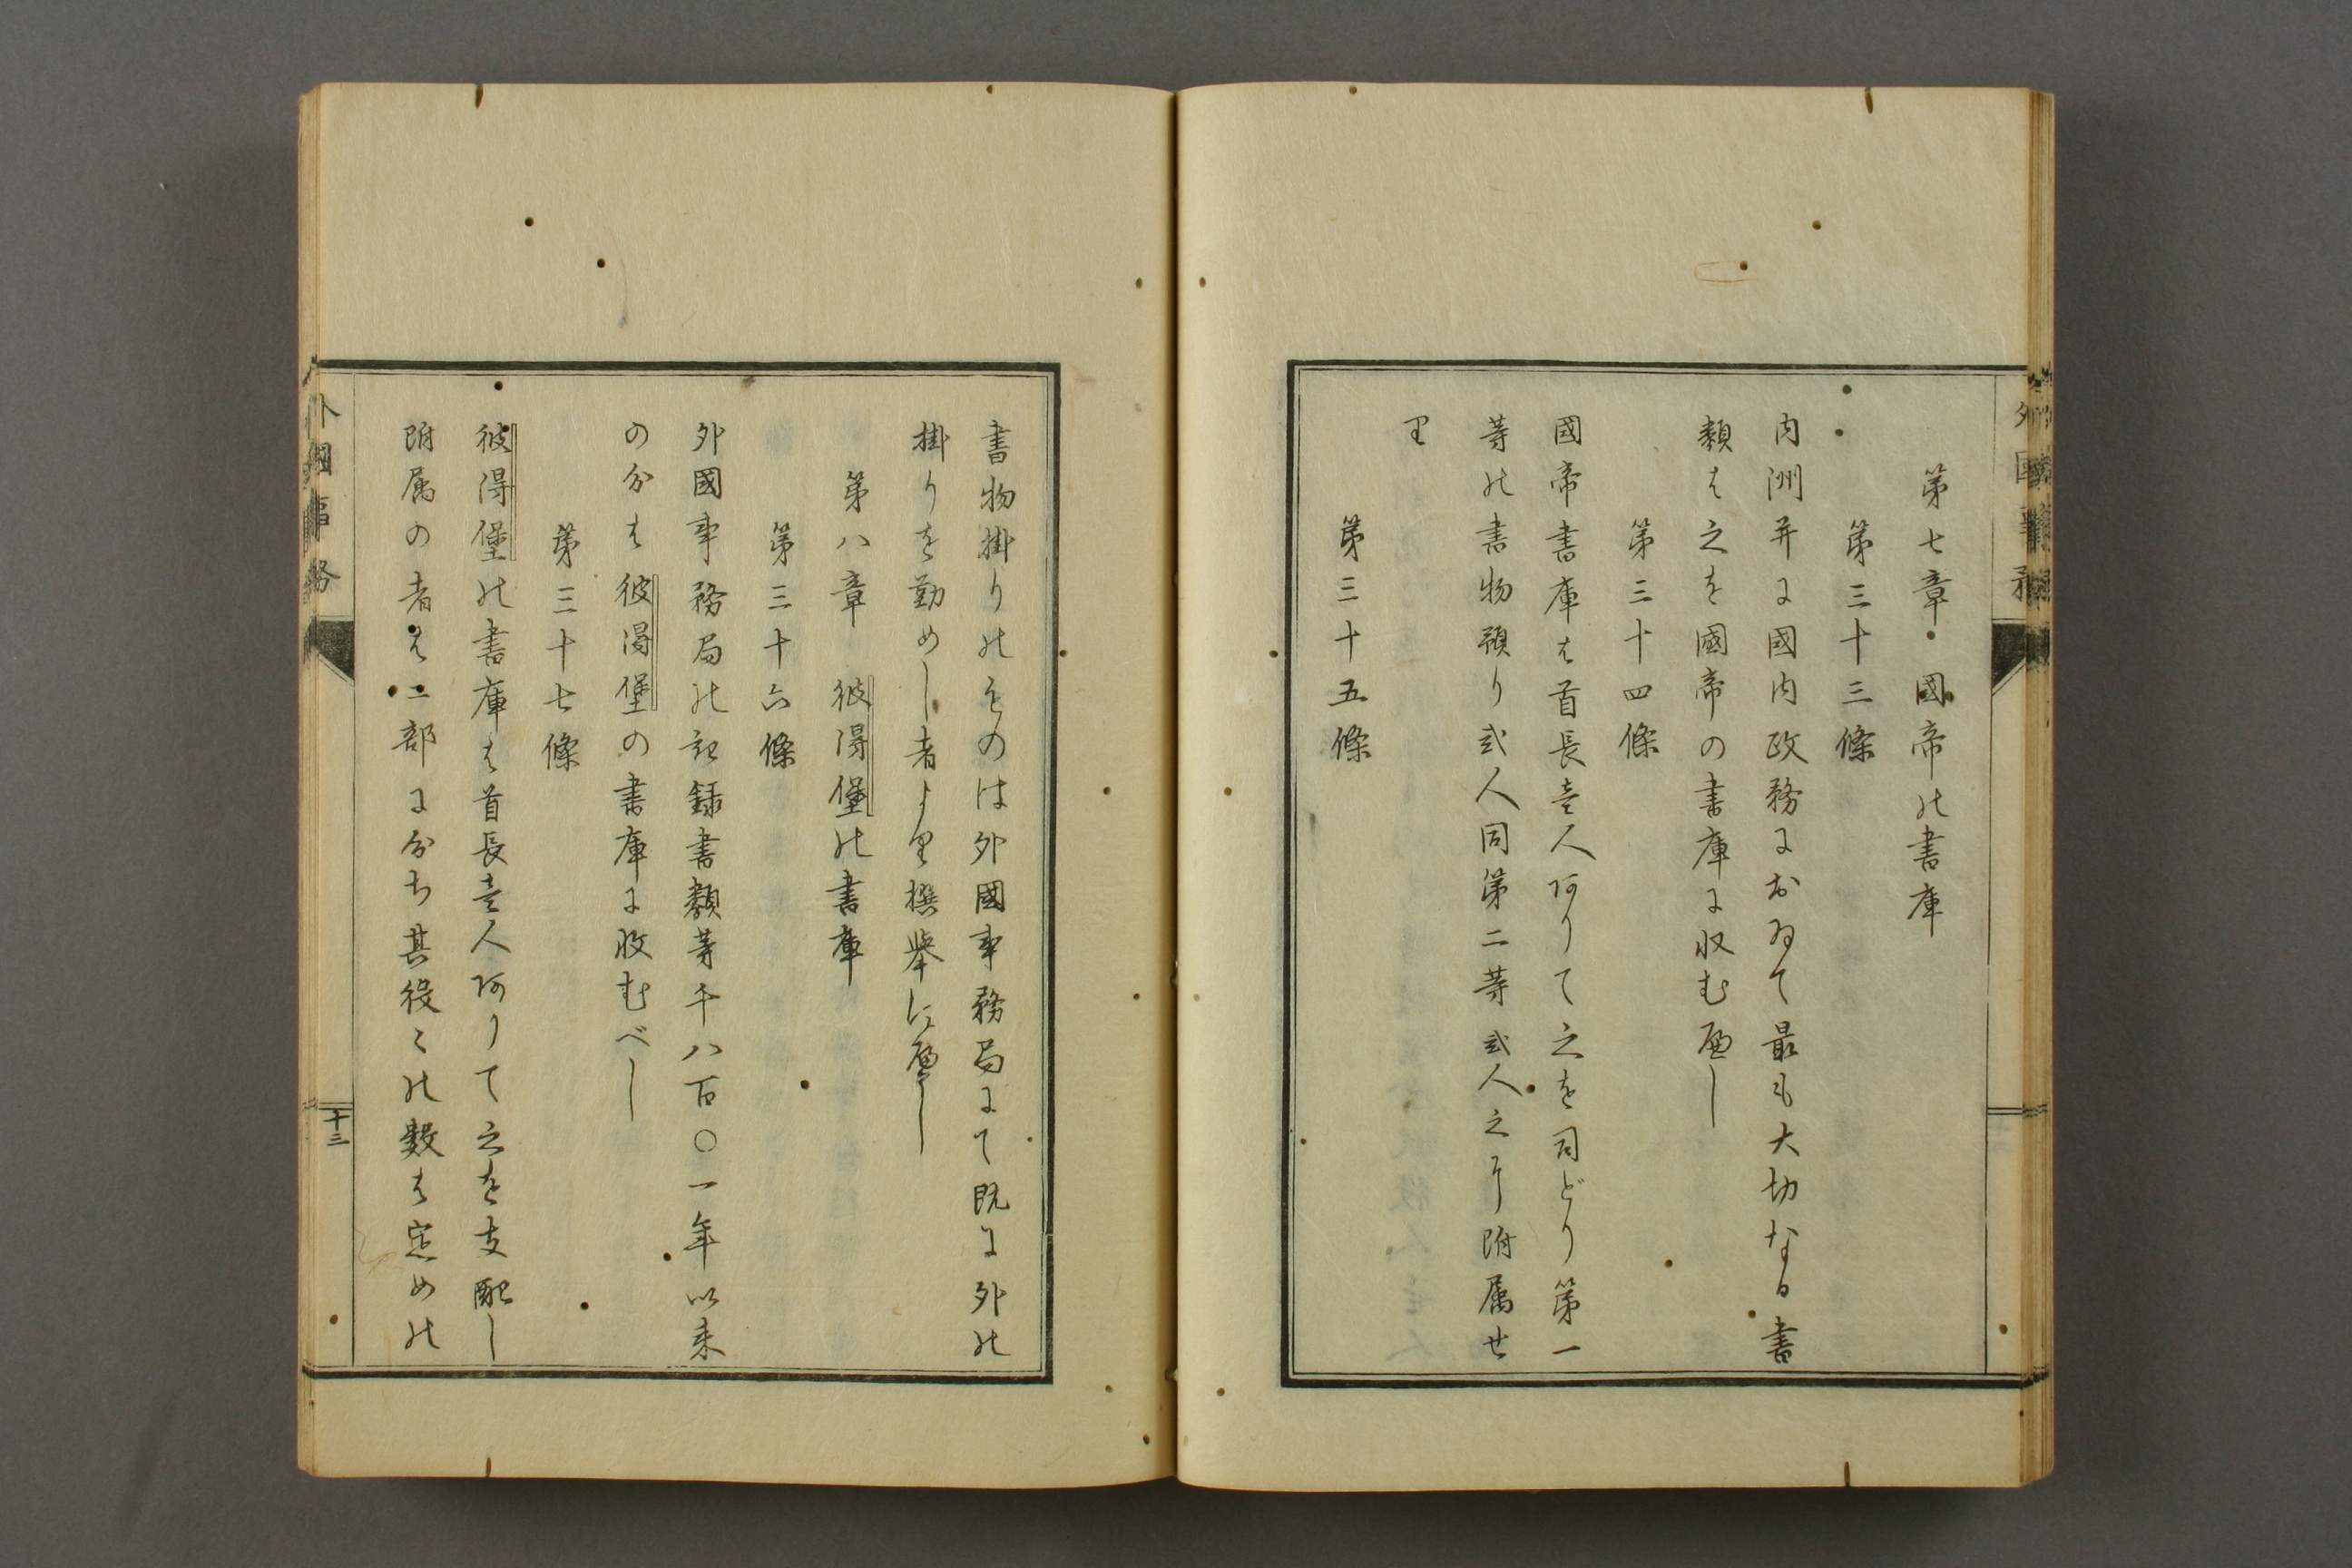 第七章 國帝の書庫
第三十三條
内洲并に國内政務におゐて最も大切なる書
類は之を國帝の書庫に収む可し
第三十四條
國帝書庫は首長壱人ありて之を司どり第一
等の書物預り弐人同第二等弐人之に附属せ
り
第三十五條
書物掛りのものは外國事務局にて既に外の
掛りを勤めし者より撰擧に可し
第八章 彼得堡の書庫
第三十六條
外國事務局の記録書類等千八百〇一年以来
の分は彼得堡の書庫に收むべし
第三十七條
彼得堡の書庫は首長壱人ありて之を支配し
附属の者は二部に分ち其役々の数は定めの
外國事務
十三